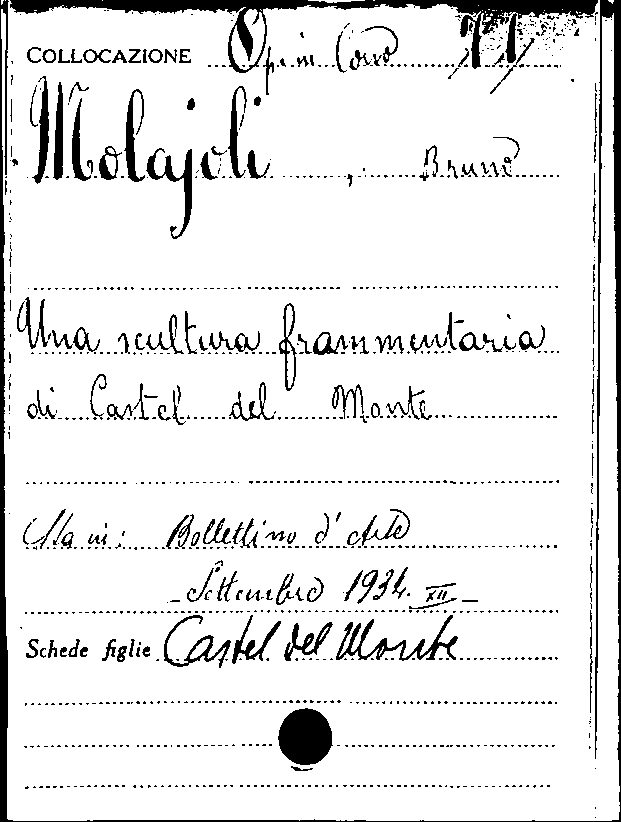 COLLOCAZIONE
Molajoli, Bruno
Una scultura frammentaria
di Castel del Monte
Sta in: Bollettino d'Arte
Settembre 1934. XII
Schede figlie Castel del Monte